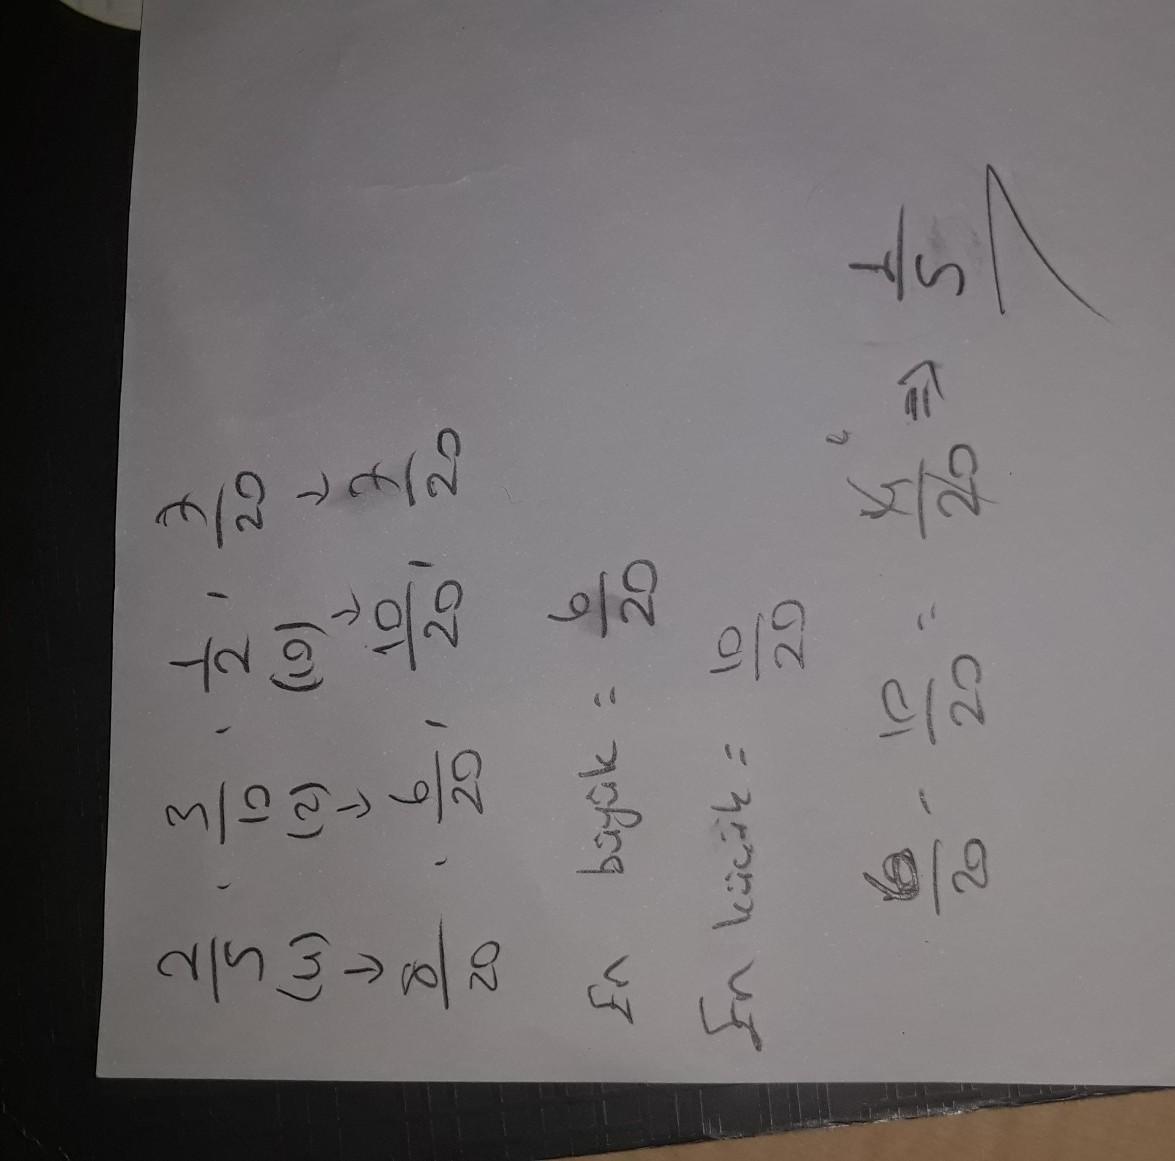 2/5 , 3/10 , 1/2 , 7/20
(4) (2) (10)
↓ ↓ ↓ ↓
8/20 , 6/20 , 10/20 , 7/20
En büyük = 6/20
En küçük = 10/20
6/20 - 10/20 = 4/20 ⇒ 1/5